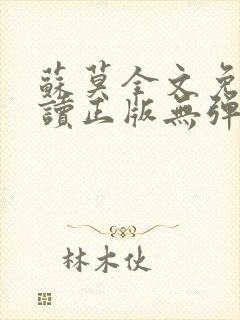 蘇莫全文免
讀正版無彈
林木伙